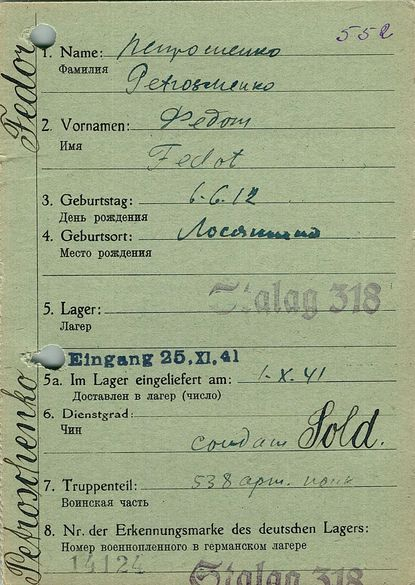 552
1. Name: Петрошенко
Фамилия
Petroschenko
2. Vornamen: Федот
Имя
Fedot
3. Geburtstag: 6.6.12
День рождения
4. Geburtsort:
Место рождения
Stalag 318
5. Lager:
Лагер
Eingang 25. XI. 41
5a. Im Lager eingeliefert am: 1.X.41
Доставлен в лагер (число)
6. Dienstgrad:
Чин
солдат Sold.
7. Truppenteil: 538 арт. полк
Воинская часть
8. Nr. der Erkennungsmarke des deutschen Lagers:
Номер военнопленного в германском лагере
14124
Stalag 318
Petroschenko Fedor